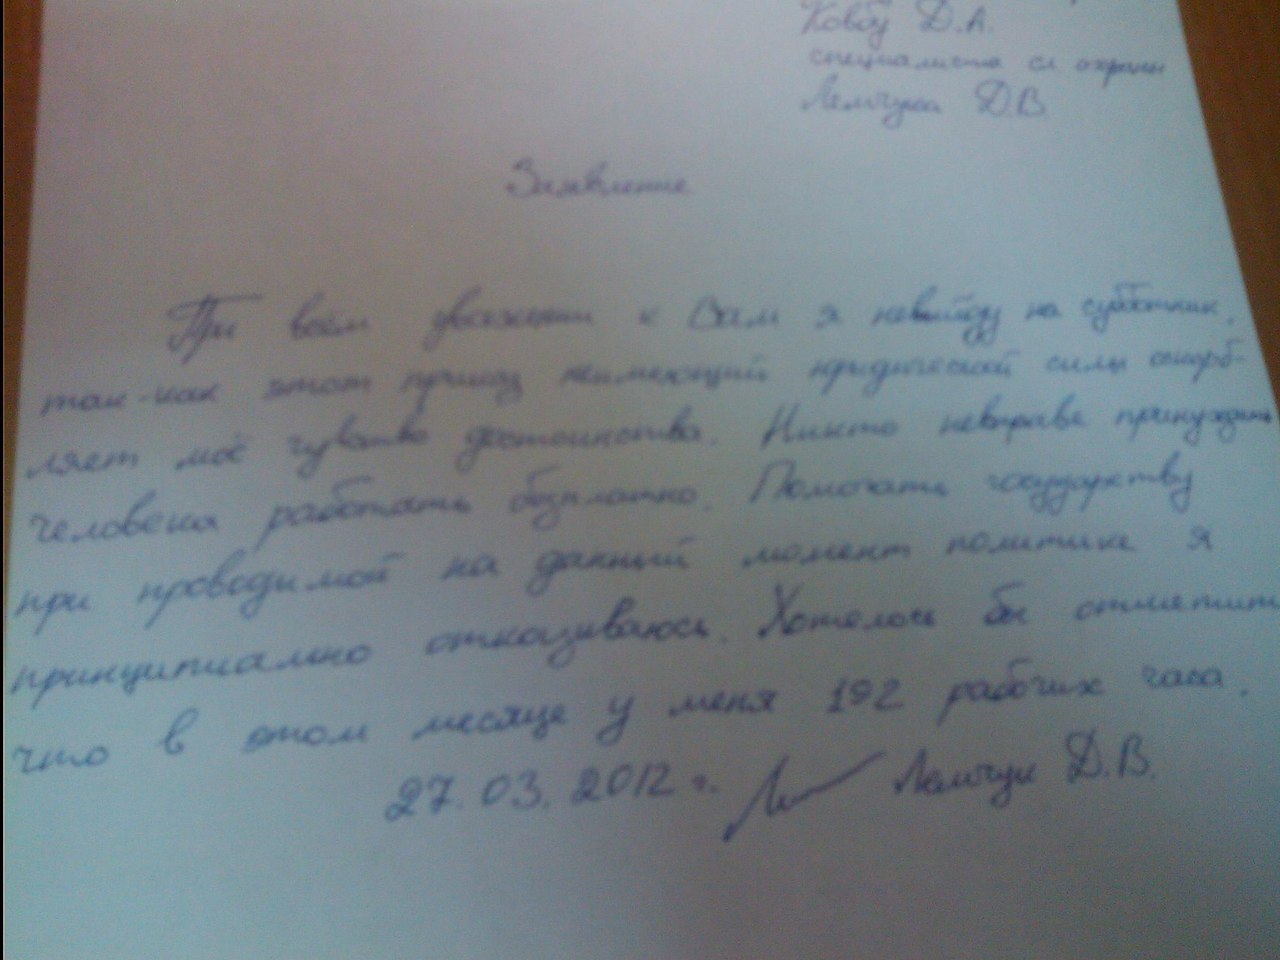 Ковбу Д.А.
специалиста сл охраны
Лемчука Д.В
Заявление
При всём уважении к Вам я невыйду на субботник,
так-как этот приказ неимеющий юридической силы оскорб-
ляет моё чувство достоинства. Никто невправе принуждать
человека работать бесплатно. Помогать государству
при проводимой на данный момент политике я
принципиально отказываюсь. Хотелось бы отметить
что в этом месяце у меня 192 рабочих часа.
27.03.2012 г. Лемчук Д.В.